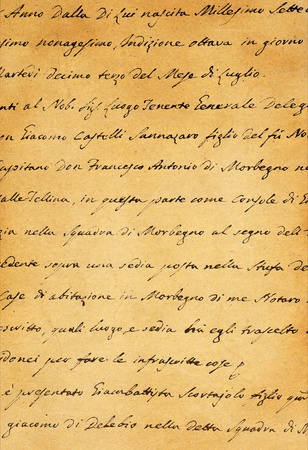 Anno Dalla Di Lui nascita Millesimo Sette
simo nonagesimo, Indizione ottava in giorno
Martedi decimo terzo del Mese di Luglio.
nti al Nob. Sig.r Luogo Tenente Generale Deleg
on Giacomo Castelli Sannazaro figlio del fù No
Capitano Don Francesco Antonio di Morbegno n
alle Tellina, in questa parte come Console di
zia nella Squadra di Morbegno al segno del
edente sopra una sedia posta nella Stufa de
Case di abitazione in Morbegno di me Notaro
scritto, quali luogo e sedia egli trascelto
donei per fare le infrascritte cose
è presentato Giambattista Scortajolo figlio
giacomo di Delebio nella detta Squadra di M